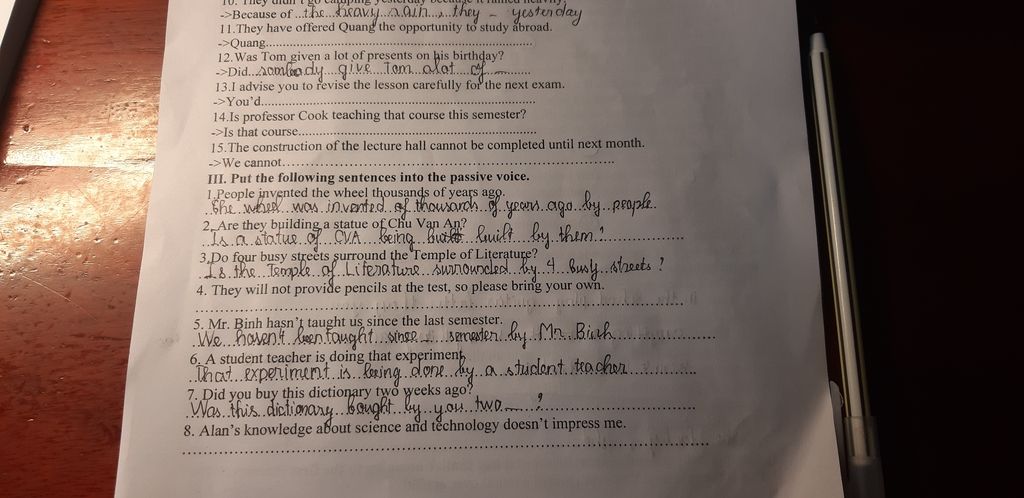 10. They didn't go camping yesterday because it rained heavily.
->Because of ..the heavy rain, they - yesterday
11.They have offered Quang the opportunity to study abroad.
->Quang..........................................................................
12.Was Tom given a lot of presents on his birthday?
->Did...sombody give Tom alot of ...........
13.I advise you to revise the lesson carefully for the next exam.
->You'd..........................................................................
14.Is professor Cook teaching that course this semester?
->Is that course................................................................
15.The construction of the lecture hall cannot be completed until next month.
->We cannot....................................................................................
III. Put the following sentences into the passive voice.
1.People invented the wheel thousands of years ago.
The wheel was invented of thousands of years ago by people.
2. Are they building a statue of Chu Van An?
Is a statue of CVA being built by them?....................
3.Do four busy streets surround the Temple of Literature?
Is the Temple of Literature surrounded by 4 busy streets?
4. They will not provide pencils at the test, so please bring your own.
........................................................................................................
5. Mr. Binh hasn't taught us since the last semester.
We haven't been taught since ... semester by Mr. Binh
6. A student teacher is doing that experiment.
That experiment is being done by a student teacher
7. Did you buy this dictionary two weeks ago?
Was this dictionary bought by you two — ?
8. Alan's knowledge about science and technology doesn't impress me.
........................................................................................................